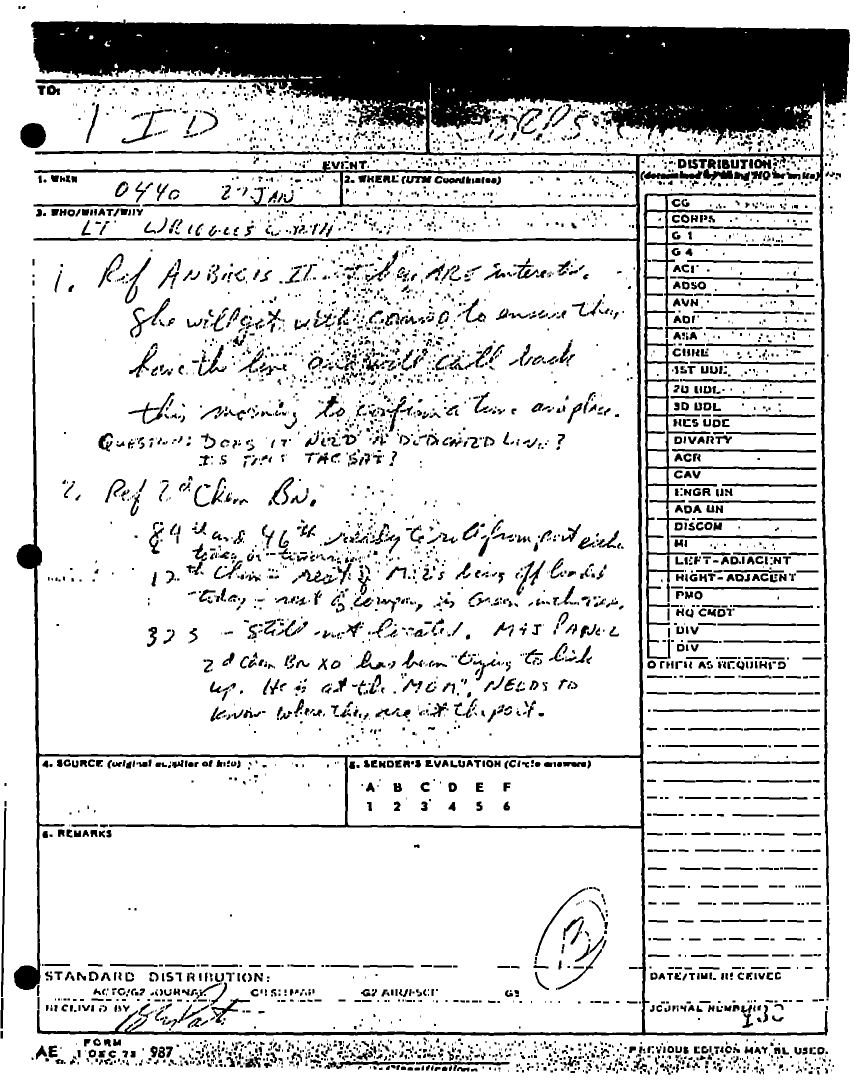 TO:
1 ID
EVENT
1. WHEN
0440 27 JAN
2. WHERE (UTM Coordinates)
3. WHO/WHAT/WHY
LT WRIGGLESWORTH
1. Ref ANBACIS II - they ARE interest.
She will get with commo to ensure they
have the line and will call back
this morning to confirm a time and place.
QUESTION: DOES IT NEED A DEDICATED LINE?
IS THIS TACSAT?
2. Ref 2d Chem BN.
84th and 46th ready to roll from port either
today or
12th Chem - rest of M12s being off loaded
today - rest of company is
323 - Still not located. MAJ PANOL
2d Chem Bn XO has been trying to link
up. He is at the "MGM", NEEDS TO
know where they are at the port.
4. SOURCE (original supplier of info)
5. SENDER'S EVALUATION (Circle answers)
A B C D E F
1 2 3 4 5 6
6. REMARKS
B
STANDARD DISTRIBUTION:
ACTG/G2 JOURNAL
G3
RECEIVED BY
AE FORM 987
1 DEC 78
DISTRIBUTION:
CG
CORPS
G 1
G 4
ACI
ADSO
AVN
ADI
ASA
CBRE
1ST BDE
2D BDE
3D BDE
RES BDE
DIVARTY
ACR
CAV
ENGR BN
ADA BN
DISCOM
MI
LEFT-ADJACENT
RIGHT-ADJACENT
PMO
HQ CMDT
DIV
DIV
OTHER AS REQUIRED
DATE/TIME RECEIVED
JOURNAL NUMBER
130
PREVIOUS EDITION MAY BE USED.